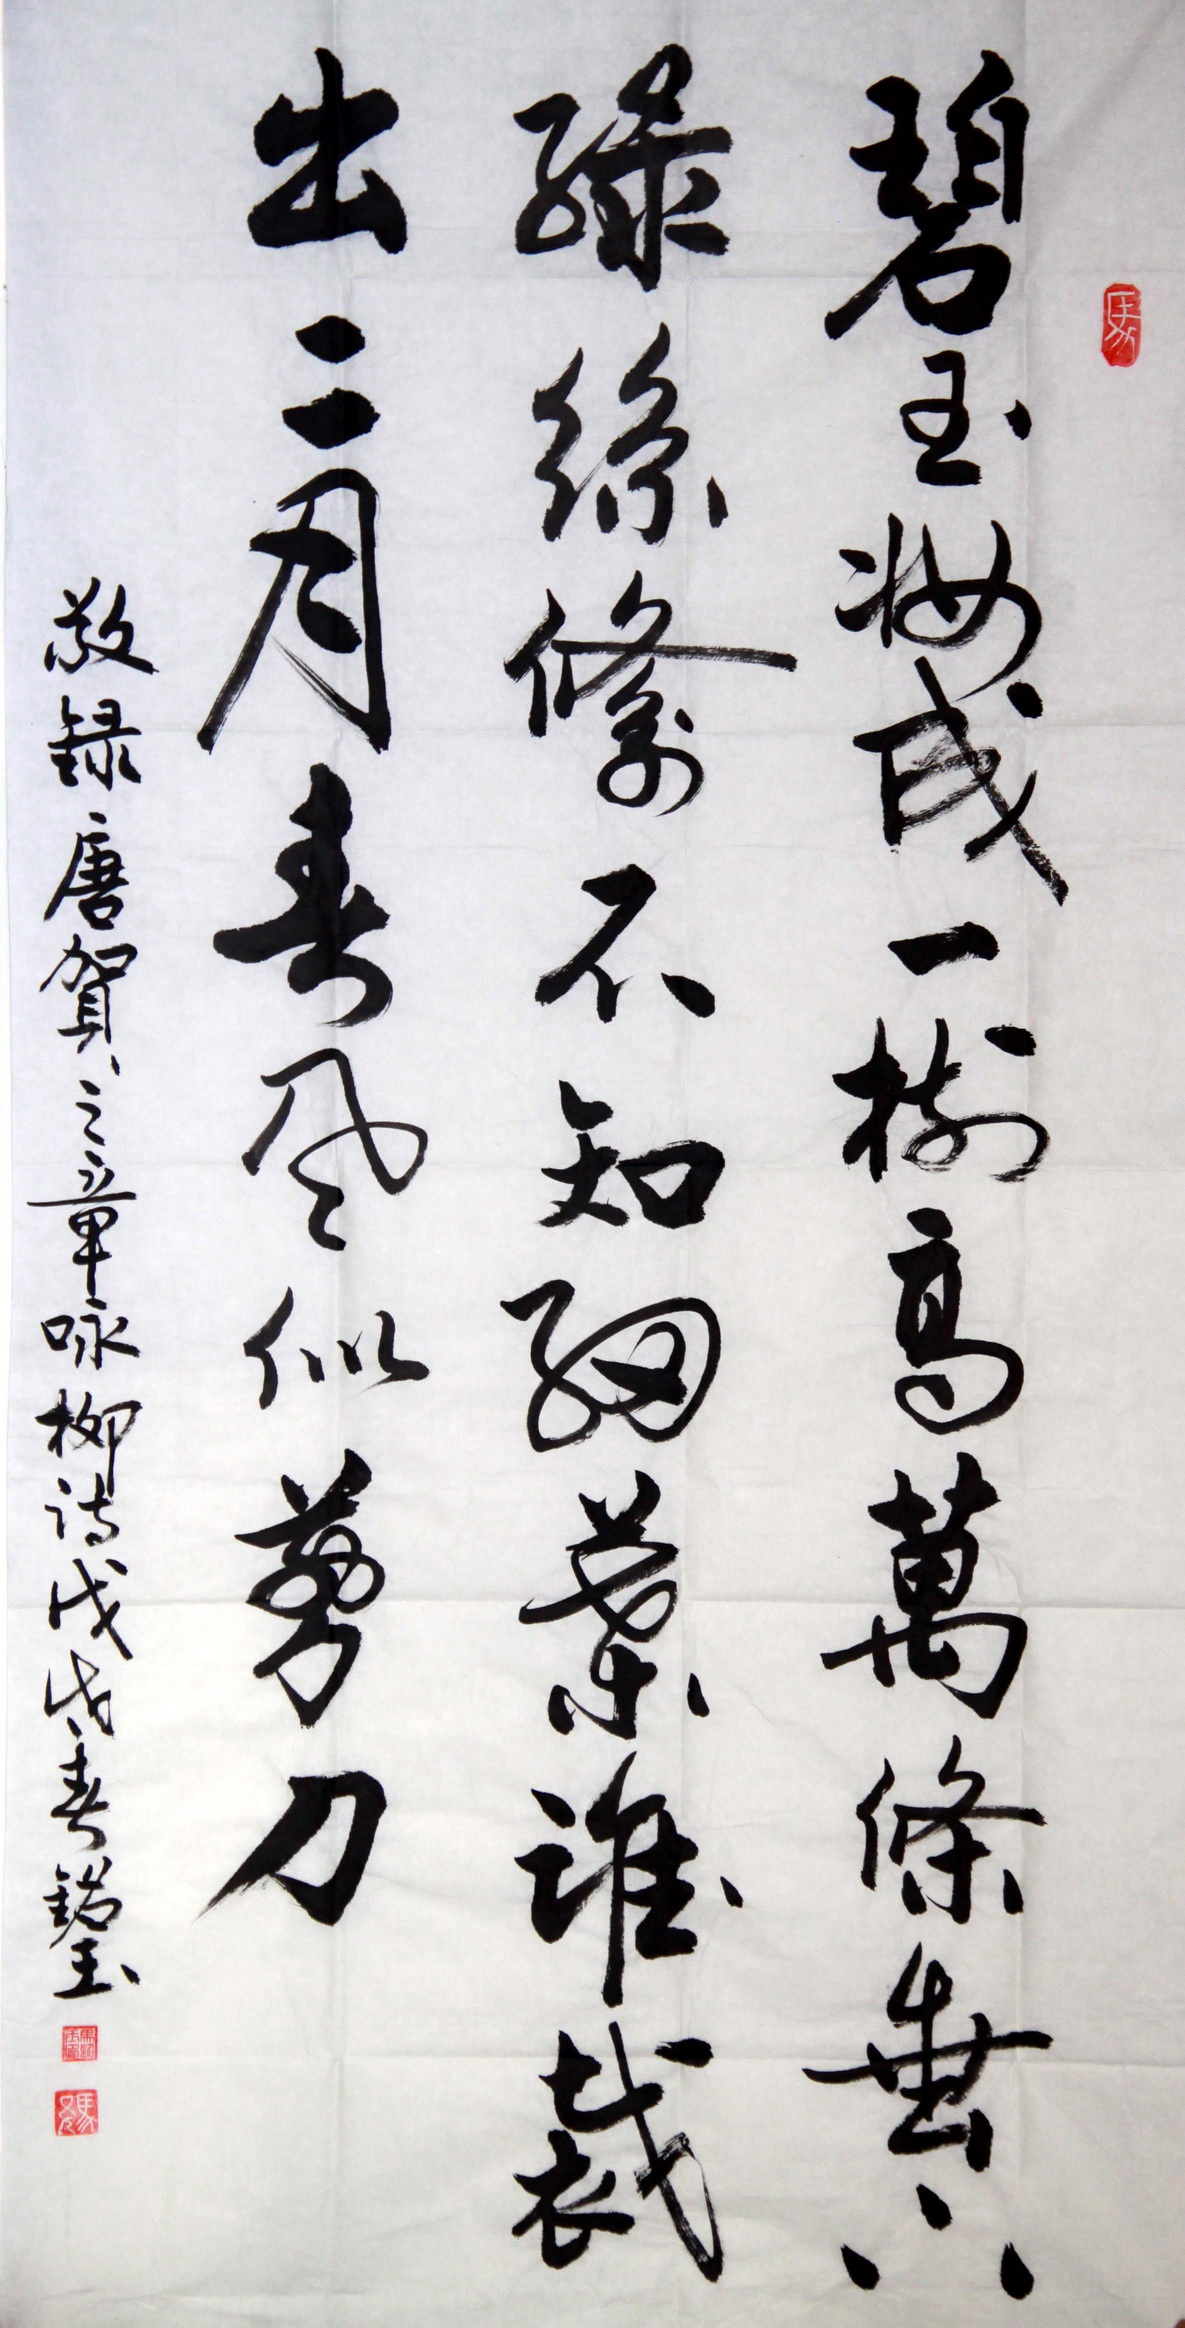 碧玉妝成一樹高萬條垂下
綠絲絛不知細葉誰裁
出二月春风似剪刀
敬録唐賀之章咏柳诗戊戌春玉